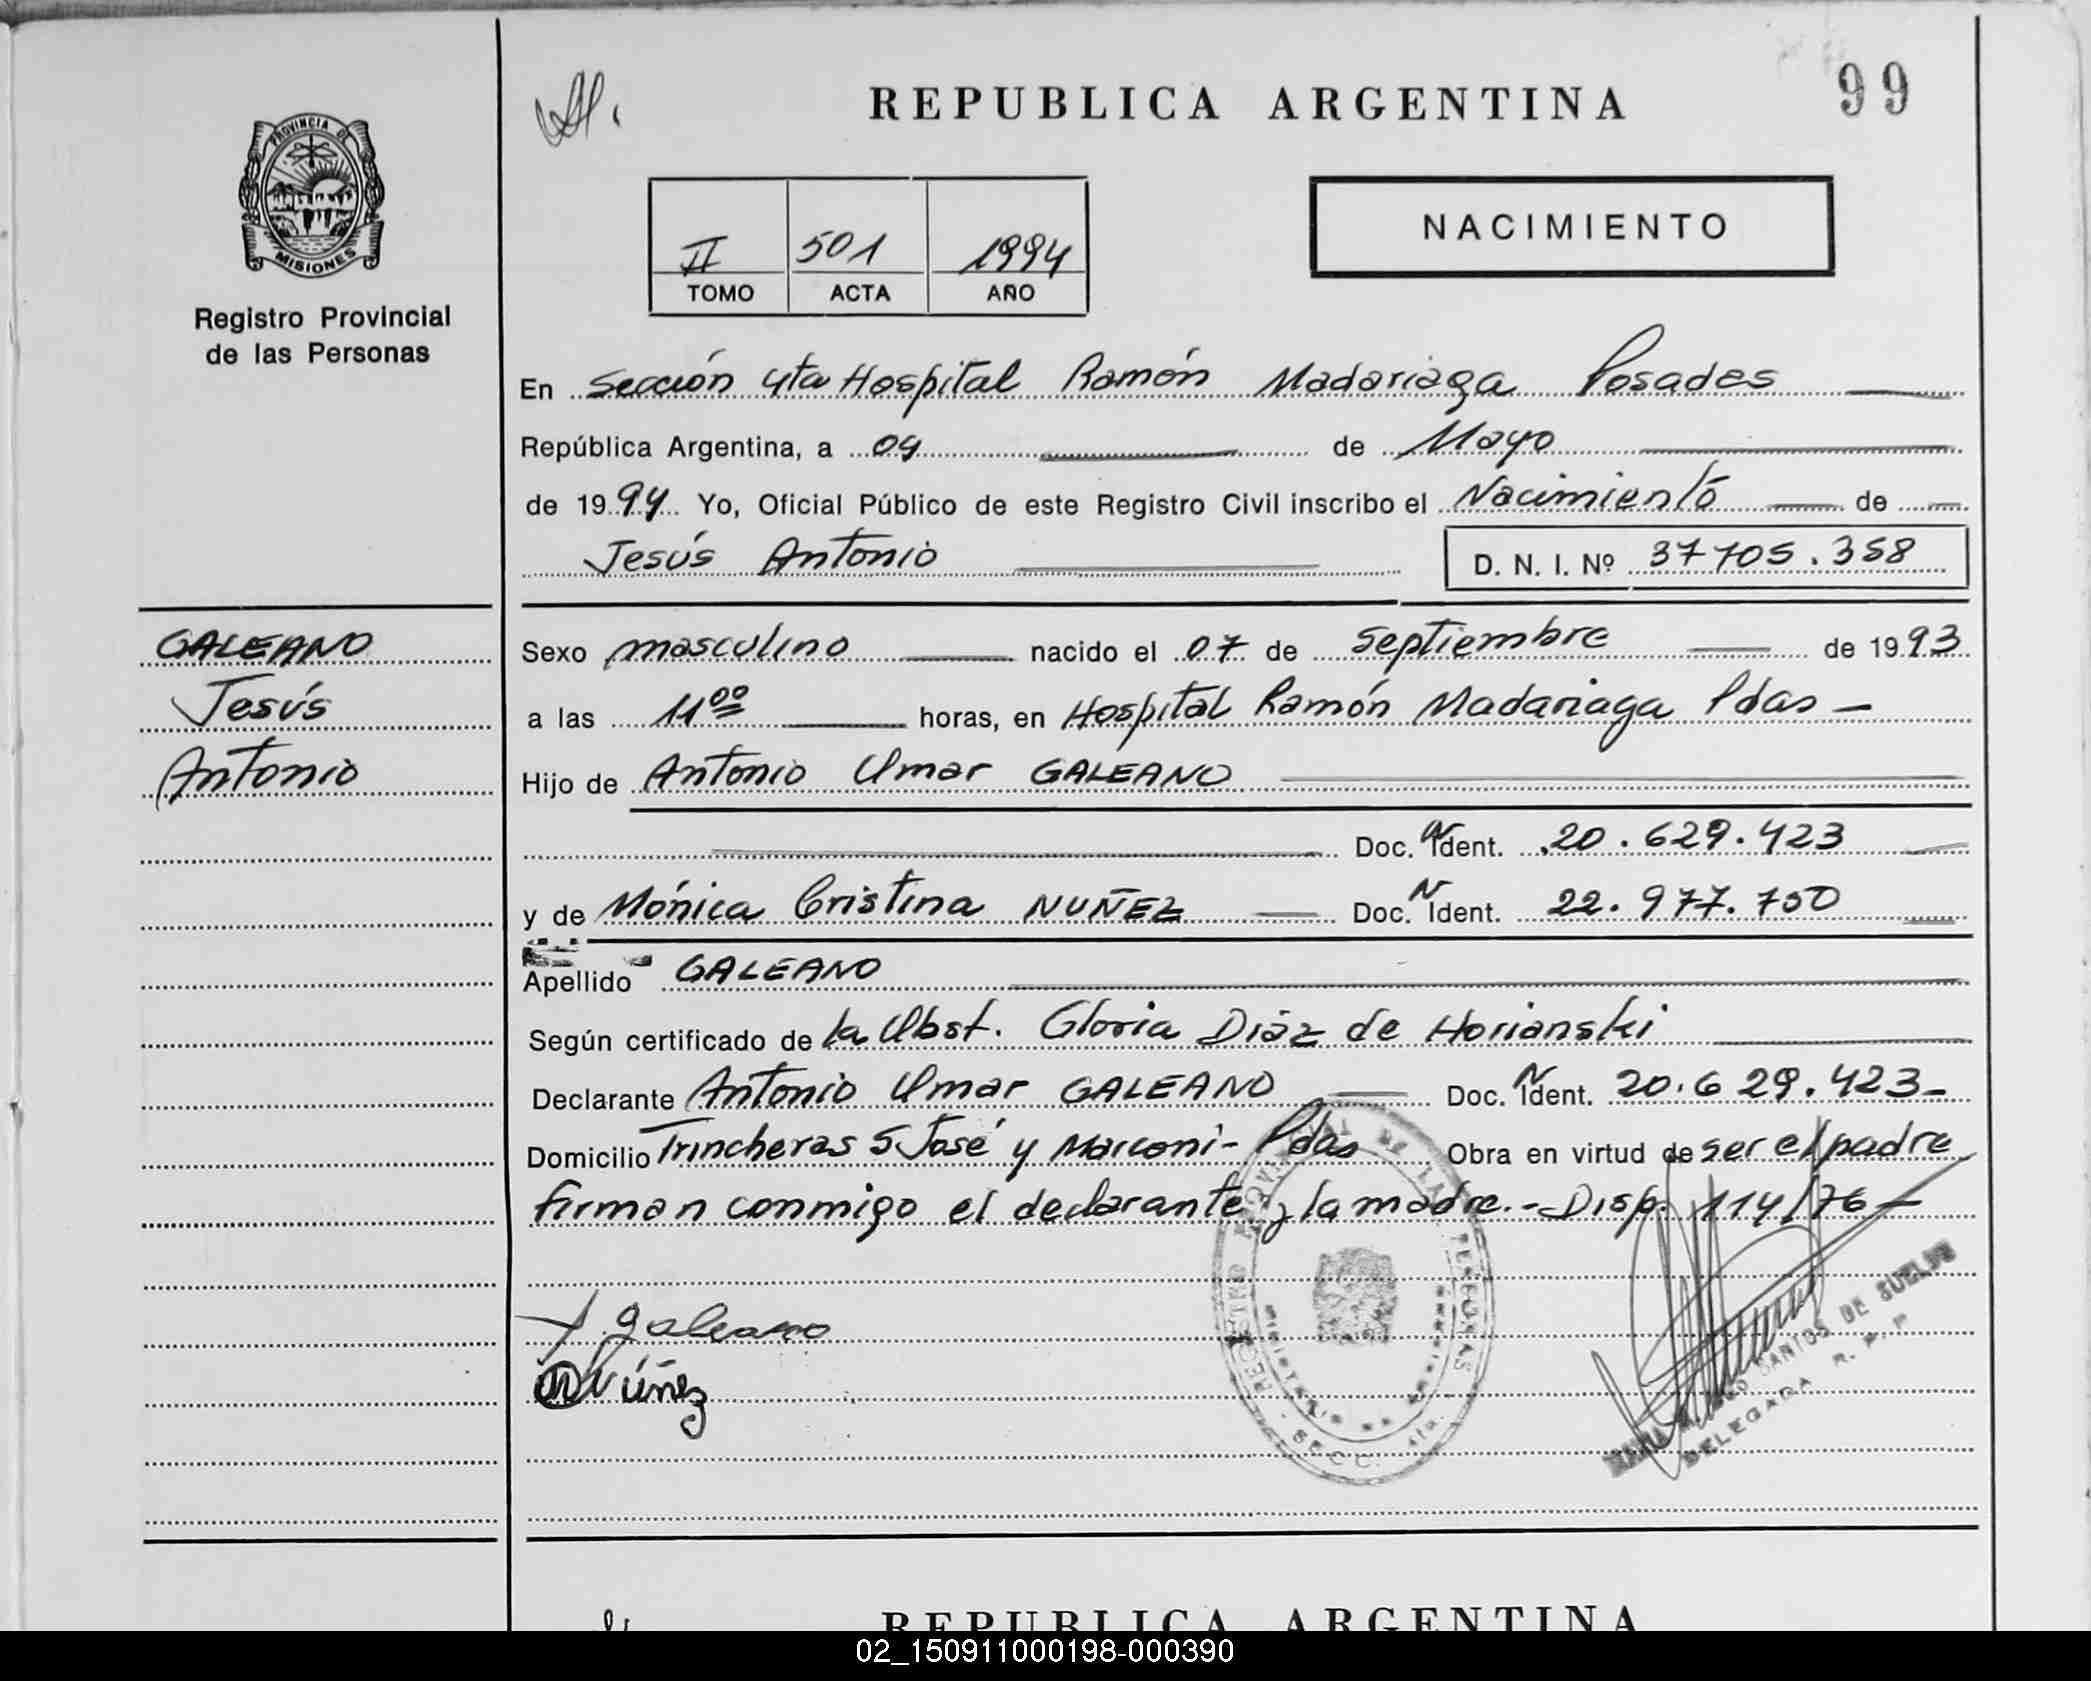 REPUBLICA ARGENTINA
99
PROVINCIA DE
MISIONES
Registro Provincial
de las Personas
II 501 1994
TOMO ACTA AÑO
NACIMIENTO
En Sección 4ta Hospital Ramón Madariaga Posadas
República Argentina, a 09 de Mayo
de 1994 Yo, Oficial Público de este Registro Civil inscribo el Nacimiento de
Jesús Antonio
D. N. I. Nº 37705.358
GALEANO
Jesús
Antonio
Sexo masculino nacido el 07 de Septiembre de 1993
a las 11 00 horas, en Hospital Ramón Madariaga Pdas -
Hijo de Antonio Omar GALEANO
Doc. N Ident. 20.629.423
y de Mónica Cristina NUÑEZ Doc. N Ident. 22.977.750
Apellido GALEANO
Según certificado de la Obst. Gloria Diáz de Horianski
Declarante Antonio Omar GALEANO Doc. N Ident. 20.629.423-
Domicilio Trincheras S José y Marconi - Pdas Obra en virtud de ser el padre
firman conmigo el declarante y la madre.- Disp. 114/76 -
Galeano
Núñez
REGISTRO PROVINCIAL DE LAS PERSONAS
SECC. 4ta.
SANTOS DE SUELDO
DELEGADA R. P. P
REPUBLICA ARGENTINA
02_150911000198-000390